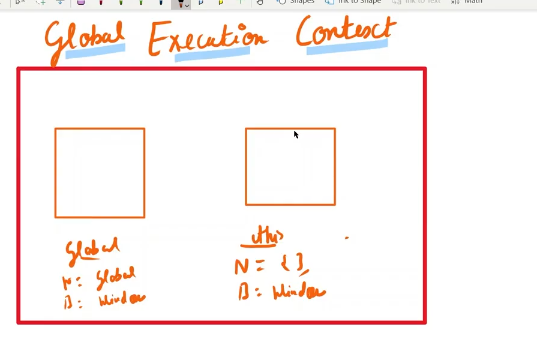 Shapes Ink to Shape Ink to Text Math
Global Execution Context
Global
N: Global
B: Window
this
N = { }
B: Window